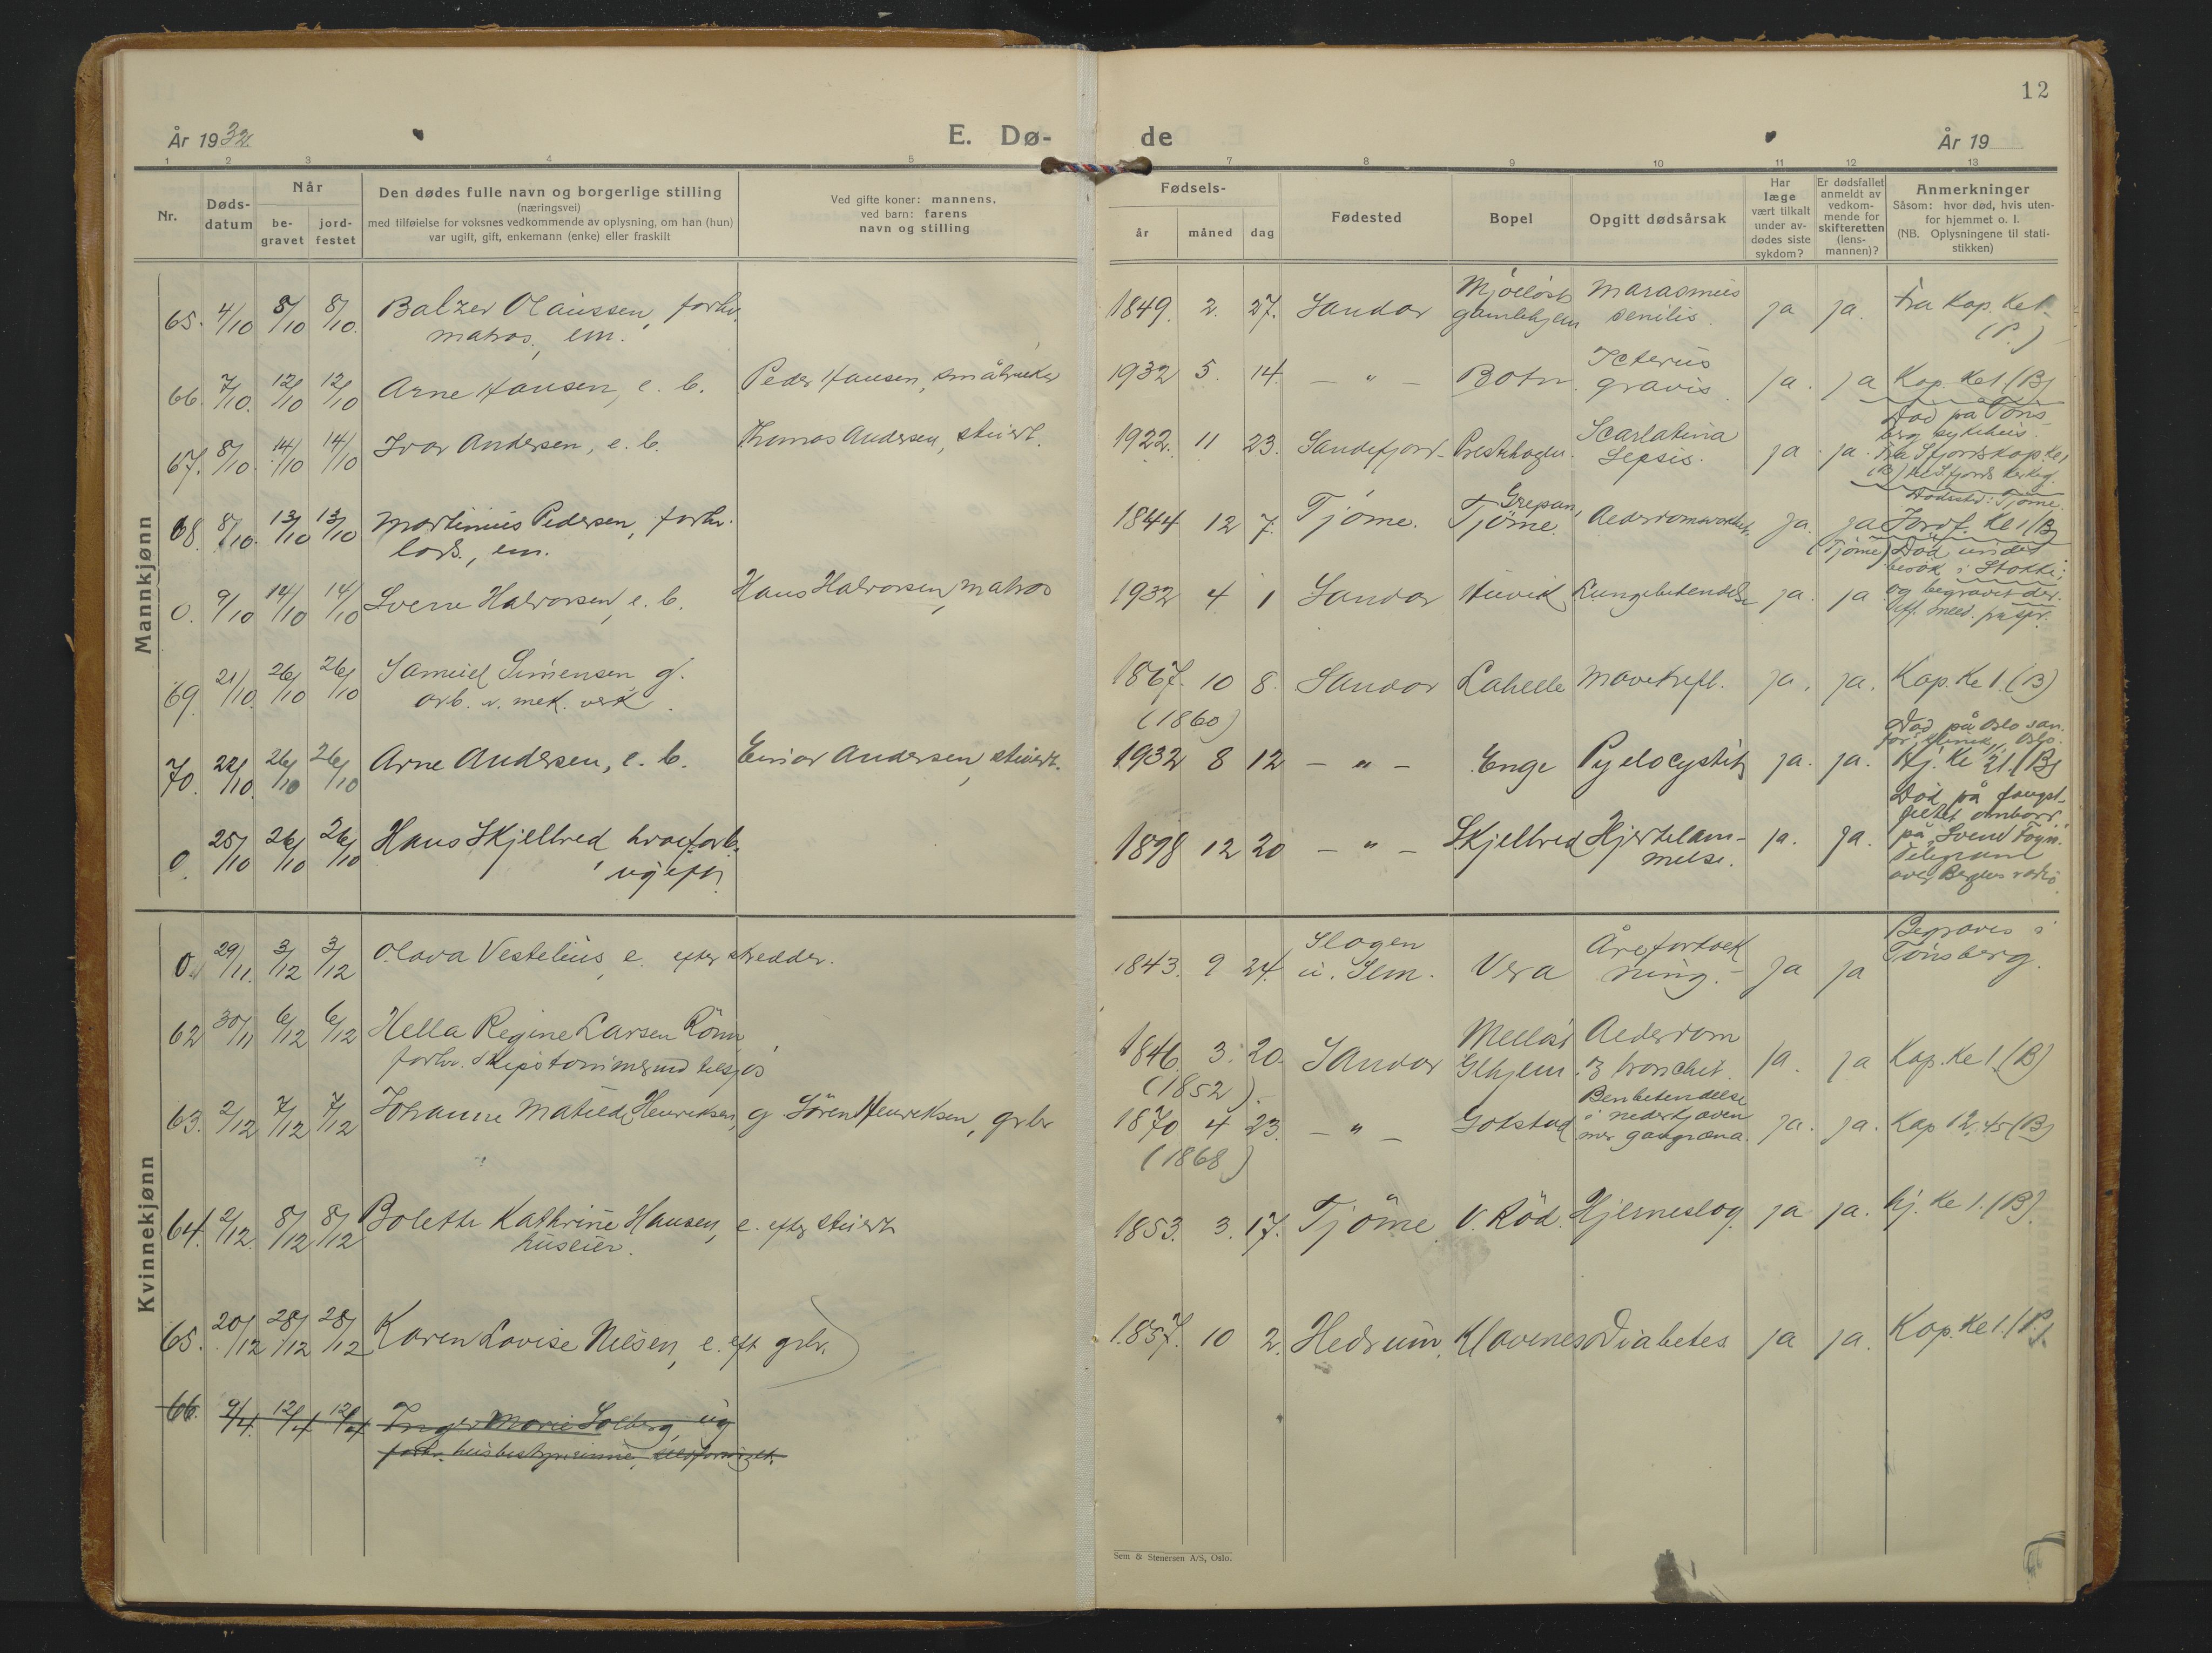 12
År 1932
E. Dø-
de
År 19
1 2 3 4 5 7 8 9 10 11 12 13
Nr.
Døds-
datum
Når
be-
gravet
jord-
festet
Den dødes fulle navn og borgerlige stilling
(næringsvei)
med tilføielse for voksnes vedkommende av oplysning, om han (hun)
var ugift, gift, enkemann (enke) eller fraskilt
Ved gifte koner: mannens,
ved barn: farens
navn og stilling
Fødsels-
år måned dag
Fødested
Bopel
Opgitt dødsårsak
Har
læge
vært tilkalt
under av-
dødes siste
sykdom?
Er dødsfallet
anmeldt av
vedkom-
mende for
skifteretten
(lens-
mannen)?
Anmerkninger
Såsom: hvor død, hvis uten-
for hjemmet o. l.
(NB. Oplysningene til stati-
stikken)
Mannkjønn
65. 4/10 8/10 8/10. Balzer Olaussen, forhv.
matros, em.
1849. 2. 27. Sandar Mjöllöst
gamlehjem
Marasmus
senilis.
ja ja. Fra Kap. Kel
(P.)
66. 7/10. 12/10 12/10 Arne Hansen, e. b. Peder Hansen, småbruker
1932 5. 14. — " — Botn. Icterus
gravis. ja. ja Kap. Kel (B)
67. 8/10. 14/10 14/10 Ivar Andersen, e. b. Thomas Andersen, stuert.
1922. 11 23. Sandefjord Presthagen. Scarlatina
Sepsis. ja ja.
Död på Töns-
berg sykehus.
Fra Sfjords kap. Kel
(B) til Sfjords kirkeg.
68. 8/10. 13/10 13/10 Martinius Pedersen, forhv.
lods., em.
1844 12 7. Tjöme. Grepan,
Tjöme. Alderdomssvakhet. ja. ja
Dödssted: Tjöme.
Jordf. Kl 1 (B)
(Tjöme)
0. 9/10 14/10 14/10 Sverre Halvorsen, e. b. Hans Halvorsen, matros
1932 4 1 Sandar Huvik Lungebetendelse ja. ja
Död under
besök i Stokke;
og begravet der.
Tlf. meld. fra spr.
69. 21/10. 26/10 26/10 Samuel Simensen, g.
arb. v. mek. verk.
1867. 10 8. Sandar Lahelle Mavekreft. ja. ja. Kap. Kl 1. (B)
(1860)
70. 22/10. 26/10 26/10 Arne Andersen, e. b. Einar Andersen, stuert.
1932 8 12 — " — Enge Pyelocystit ja. ja.
Död på Oslo san.
for. klinik, Oslo.
Hj. Kl 21 (B)
0. 25/10 26/10 26/10 Hans Skjellvred hvalfarb.
ugift
1898 12 20 — " — Skjellvred Hjertelam-
melse. ja. ja.
Död på fangst-
feltet ombord
på "Svend Foyn".
Telegram
over Bergen radio.
Kvinnekjønn
0. 29/11. 3/12 3/12 Olava Vestelius, e. efter skredder.
1843. 9 24. Slagen
u. Sem. Vera Åreforkalk
ning. — ja ja Begraves i
Tönsberg.
62 30/11 6/12 6/12 Hella Regine Larsen Rönn,
forhv. skipstömmermd tilsjös
1846. 3. 20. Sandar Mellöst
Glhjem. Alderdom
og bronchit. ja. ja Kap. Kl 1 (B)
(1852).
63. 2/12 7/12 7/12 Johanne Matilde Henriksen, g Sören Henriksen, grbr
1870 4 23. — " — Gokstad Benbetendelse
i nederkjæven
med gangræna. ja. ja. Kap 12.45 (B)
(1868)
64. 2/12. 8/12 8/12 Bolette Kathrine Hansen, e. efter stuert
huseier.
1853. 3. 17. Tjöme V. Röd. Hjerneslag. ja ja. hj. Kl 1. (B).
65. 20/12 28/12 28/12 Karen Lovise Nilsen, e. eft grbr.
1857. 10 2. Hedrum. Klavenes Diabetes ja ja. Kap. Kl 1. (P).
66. 9/4. 12/4 12/4 Inger Marie Solberg, ug
forhv. husbestyrerinne,
Sem & Stenersen A/S, Oslo.